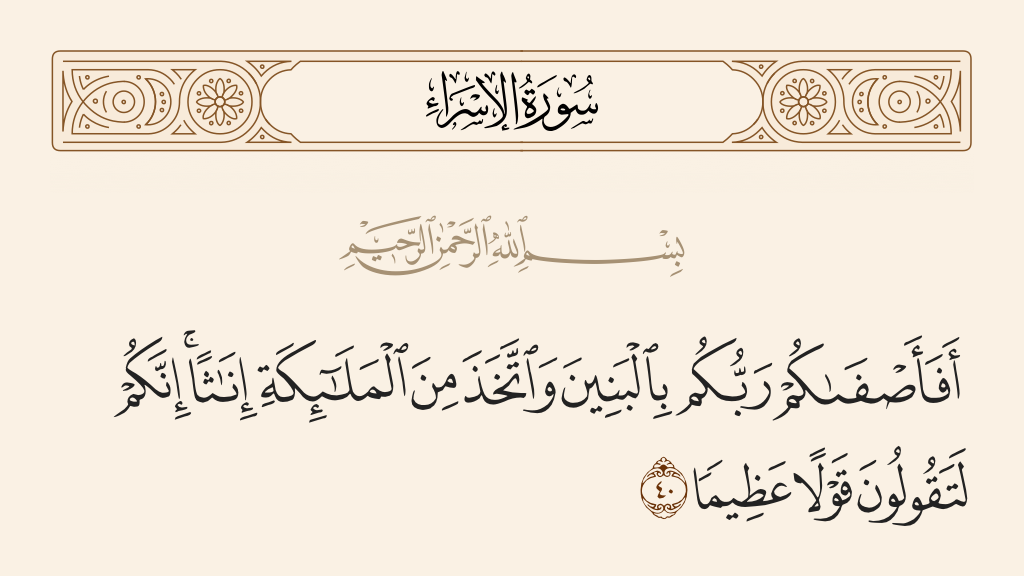 سُورَةُ الإِسْرَاءِ
بِسْمِ ٱللَّهِ ٱلرَّحْمَٰنِ ٱلرَّحِيمِ
أَفَأَصْفَىٰكُمْ رَبُّكُم بِٱلْبَنِينَ وَٱتَّخَذَ مِنَ ٱلْمَلَـٰٓئِكَةِ إِنَـٰثًا ۚ إِنَّكُمْ
لَتَقُولُونَ قَوْلًا عَظِيمًا ٤٠